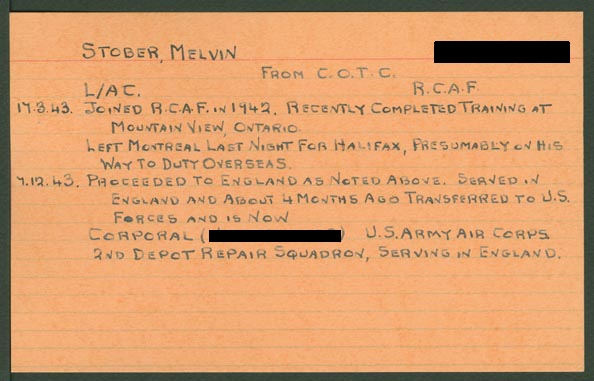 STOBER, MELVIN
FROM C.O.T.C.
L/AC. R.C.A.F.
17.3.43. JOINED R.C.A.F. IN 1942. RECENTLY COMPLETED TRAINING AT
MOUNTAIN VIEW, ONTARIO.
LEFT MONTREAL LAST NIGHT FOR HALIFAX, PRESUMABLY ON HIS
WAY TO DUTY OVERSEAS.
7.12.43. PROCEEDED TO ENGLAND AS NOTED ABOVE. SERVED IN
ENGLAND AND ABOUT 4 MONTHS AGO TRANSFERRED TO U.S.
FORCES AND IS NOW
CORPORAL ( ) U.S. ARMY AIR CORPS
2ND DEPOT REPAIR SQUADRON, SERVING IN ENGLAND.